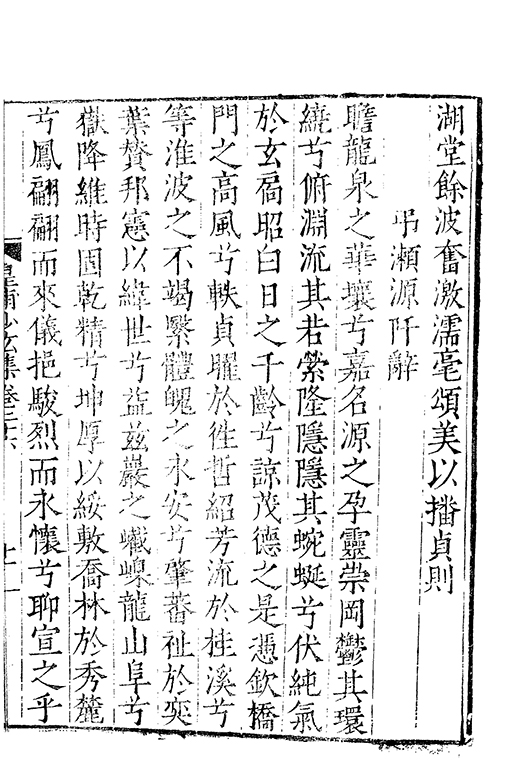 湖堂餘波奮激濡毫頌美以播貞則
弔瀨源阡辭
瞻龍泉之華壤兮嘉名源之孕靈崇岡鬱其環
繞兮俯淵流其若縈隆隱隱其蜿蜒兮伏純氣
於玄扃昭白日之千齡兮諒茂德之是憑欽橋
門之高風兮軼貞曜於徃哲紹芳流於桂溪兮
等淮波之不竭繄體魄之永安兮肇蕃祉於奕
葉贊邦憲以緯世兮益兹巖之巀嵲龍山阜兮
嶽降維時固乾精兮坤厚以綏敷喬林於秀麓
兮鳳翩翩而來儀挹駿烈而永懷兮聊宣之乎
皇甫少玄集卷之六
十一